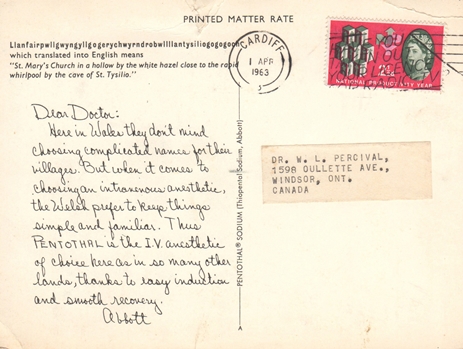 PRINTED MATTER RATE
Llanfairpwllgwyngyllgogerychwyrndrobwlllantysiliogogogoch
which translated into English means
"St. Mary's Church in a hollow by the white hazel close to the rapid
whirlpool by the cave of St. Tysilio."
CARDIFF
1 APR
1963
2½
NATIONAL PRODUCTIVITY YEAR
Dear Doctor:
Here in Wales they don't mind
choosing complicated names for their
villages. But when it comes to
choosing an intravenous anesthetic,
the Welsh prefer to keep things
simple and familiar. Thus
PENTOTHAL is the I.V. anesthetic
of choice here as in so many other
lands, thanks to easy induction
and smooth recovery.
Abbott
PENTOTHAL® SODIUM (Thiopental Sodium, Abbott)
DR. W. L. PERCIVAL,
1598 OULLETTE AVE.,
WINDSOR, ONT.
CANADA